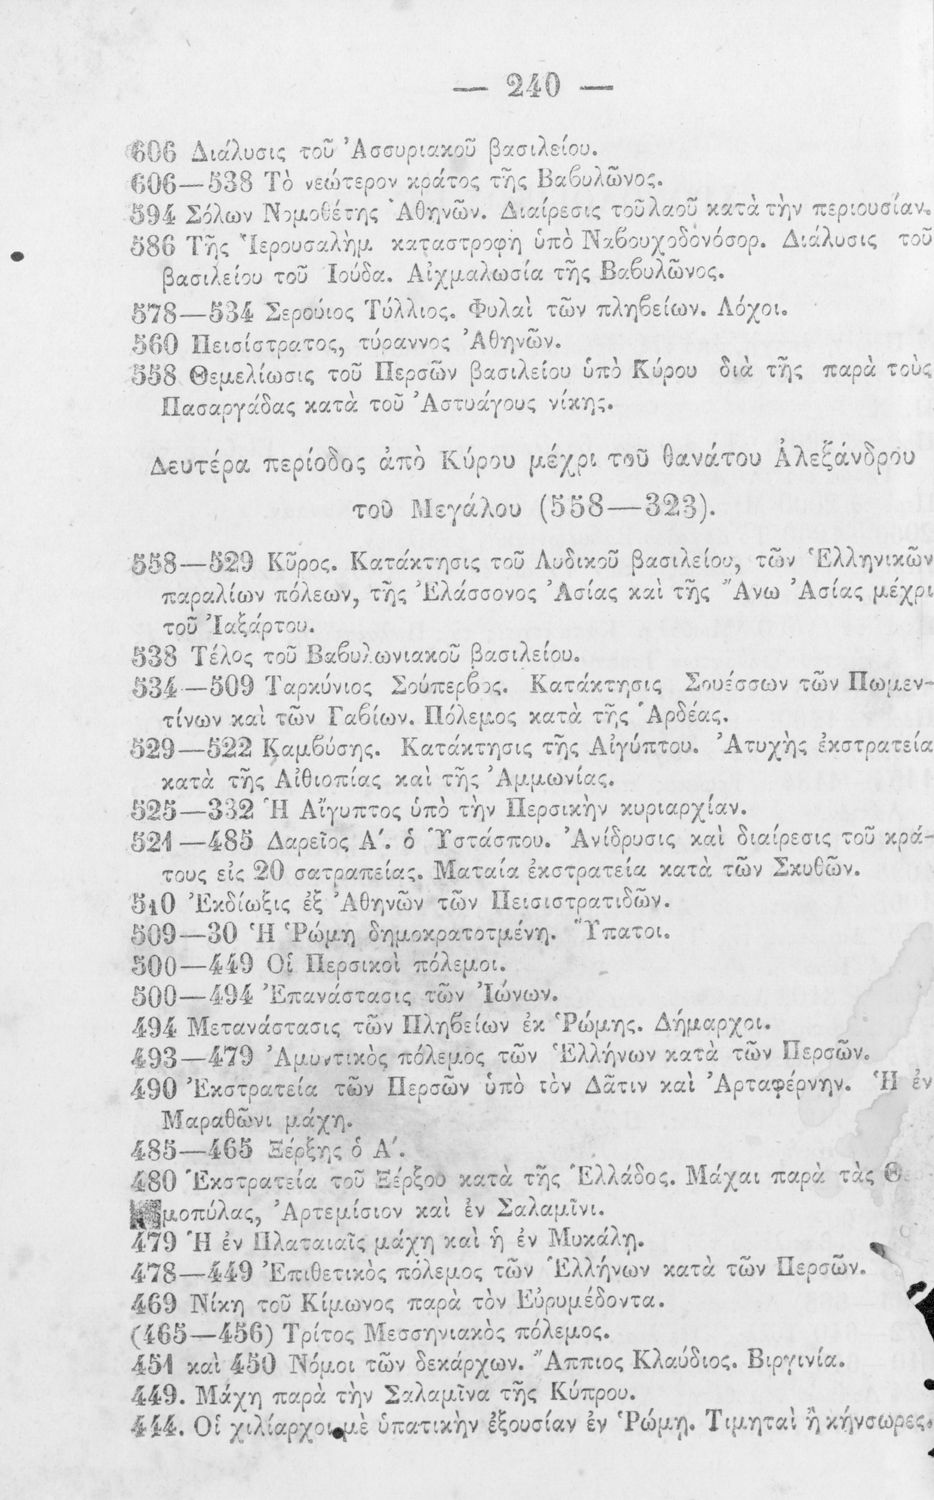 — 240 —
606 Διάλυσις τοῦ Ἀσσυριακοῦ βασιλείου.
606—538 Τὸ νεώτερον κράτος τῆς Βαβυλῶνος.
594 Σόλων Νομοθέτης Ἀθηνῶν. Διαίρεσις τοῦ λαοῦ κατὰ τὴν περιουσίαν.
586 Τῆς Ἱερουσαλὴμ καταστροφὴ ὑπὸ Ναβουχοδονόσορ. Διάλυσις τοῦ
βασιλείου τοῦ Ἰούδα. Αἰχμαλωσία τῆς Βαβυλῶνος.
578—534 Σερούιος Τύλλιος. Φυλαὶ τῶν πληβείων. Λόχοι.
560 Πεισίστρατος, τύραννος Ἀθηνῶν.
558 Θεμελίωσις τοῦ Περσῶν βασιλείου ὑπὸ Κύρου διὰ τῆς παρὰ τοὺς
Πασαργάδας κατὰ τοῦ Ἀστυάγους νίκης.
Δευτέρα περίοδος ἀπὸ Κύρου μέχρι τοῦ θανάτου Ἀλεξάνδρου
τοῦ Μεγάλου (558—323).
558—529 Κῦρος. Κατάκτησις τοῦ Λυδικοῦ βασιλείου, τῶν Ἑλληνικῶν
παραλίων πόλεων, τῆς Ἐλάσσονος Ἀσίας καὶ τῆς Ἄνω Ἀσίας μέχρι
τοῦ Ἰαξάρτου.
538 Τέλος τοῦ Βαβυλωνιακοῦ βασιλείου.
534—509 Ταρκύνιος Σούπερβος. Κατάκτησις Σουέσσων τῶν Πωμεν-
τίνων καὶ τῶν Γαβίων. Πόλεμος κατὰ τῆς Ἀρδέας.
529—522 Καμβύσης. Κατάκτησις τῆς Αἰγύπτου. Ἀτυχὴς ἐκστρατεία
κατὰ τῆς Αἰθιοπίας καὶ τῆς Ἀμμωνίας.
525—332 Ἡ Αἴγυπτος ὑπὸ τὴν Περσικὴν κυριαρχίαν.
521—485 Δαρεῖος Α΄. ὁ Ὑστάσπου. Ἀνίδρυσις καὶ διαίρεσις τοῦ κρά-
τους εἰς 20 σατραπείας. Ματαία ἐκστρατεία κατὰ τῶν Σκυθῶν.
510 Ἐκδίωξις ἐξ Ἀθηνῶν τῶν Πεισιστρατιδῶν.
509—30 Ἡ Ῥώμη δημοκρατοτμένη. Ὕπατοι.
500—449 Οἱ Περσικοὶ πόλεμοι.
500—494 Ἐπανάστασις τῶν Ἰώνων.
494 Μετανάστασις τῶν Πληβείων ἐκ Ῥώμης. Δήμαρχοι.
493—479 Ἀμυντικὸς πόλεμος τῶν Ἑλλήνων κατὰ τῶν Περσῶν.
490 Ἐκστρατεία τῶν Περσῶν ὑπὸ τὸν Δᾶτιν καὶ Ἀρταφέρνην. Ἡ ἐν
Μαραθῶνι μάχη.
485—465 Ξέρξης ὁ Α΄.
480 Ἐκστρατεία τοῦ Ξέρξου κατὰ τῆς Ἑλλάδος. Μάχαι παρὰ τὰς Θ
μοπύλας, Ἀρτεμίσιον καὶ ἐν Σαλαμῖνι.
479 Ἡ ἐν Πλαταιαῖς μάχη καὶ ἡ ἐν Μυκάλῃ.
478—449 Ἐπιθετικὸς πόλεμος τῶν Ἑλλήνων κατὰ τῶν Περσῶν.
469 Νίκη τοῦ Κίμωνος παρὰ τὸν Εὐρυμέδοντα.
(465—456) Τρίτος Μεσσηνιακὸς πόλεμος.
451 καὶ 450 Νόμοι τῶν δεκάρχων. Ἄππιος Κλαύδιος. Βιργινία.
449. Μάχη παρὰ τὴν Σαλαμῖνα τῆς Κύπρου.
444. Οἱ χιλίαρχοι μὲ ὑπατικὴν ἐξουσίαν ἐν Ῥώμῃ. Τιμηταὶ ἢ κήνσωρες.